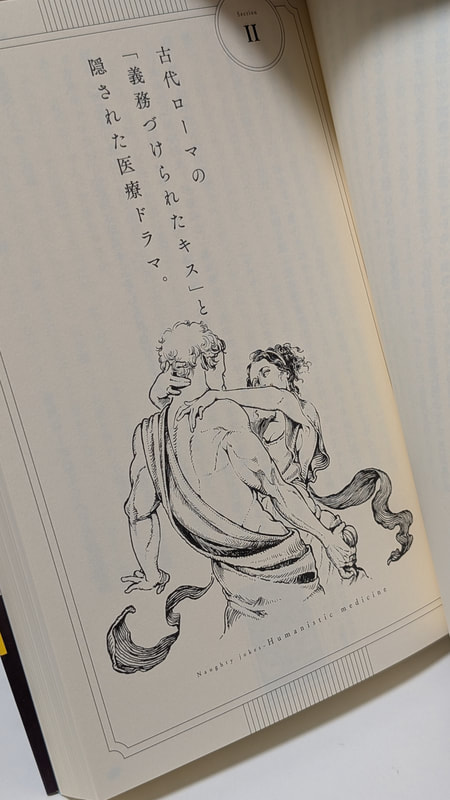 Section
II
古代ローマの
「義務づけられたキス」と
隠された医療ドラマ。
Naughty jokes-Humanistic medicine